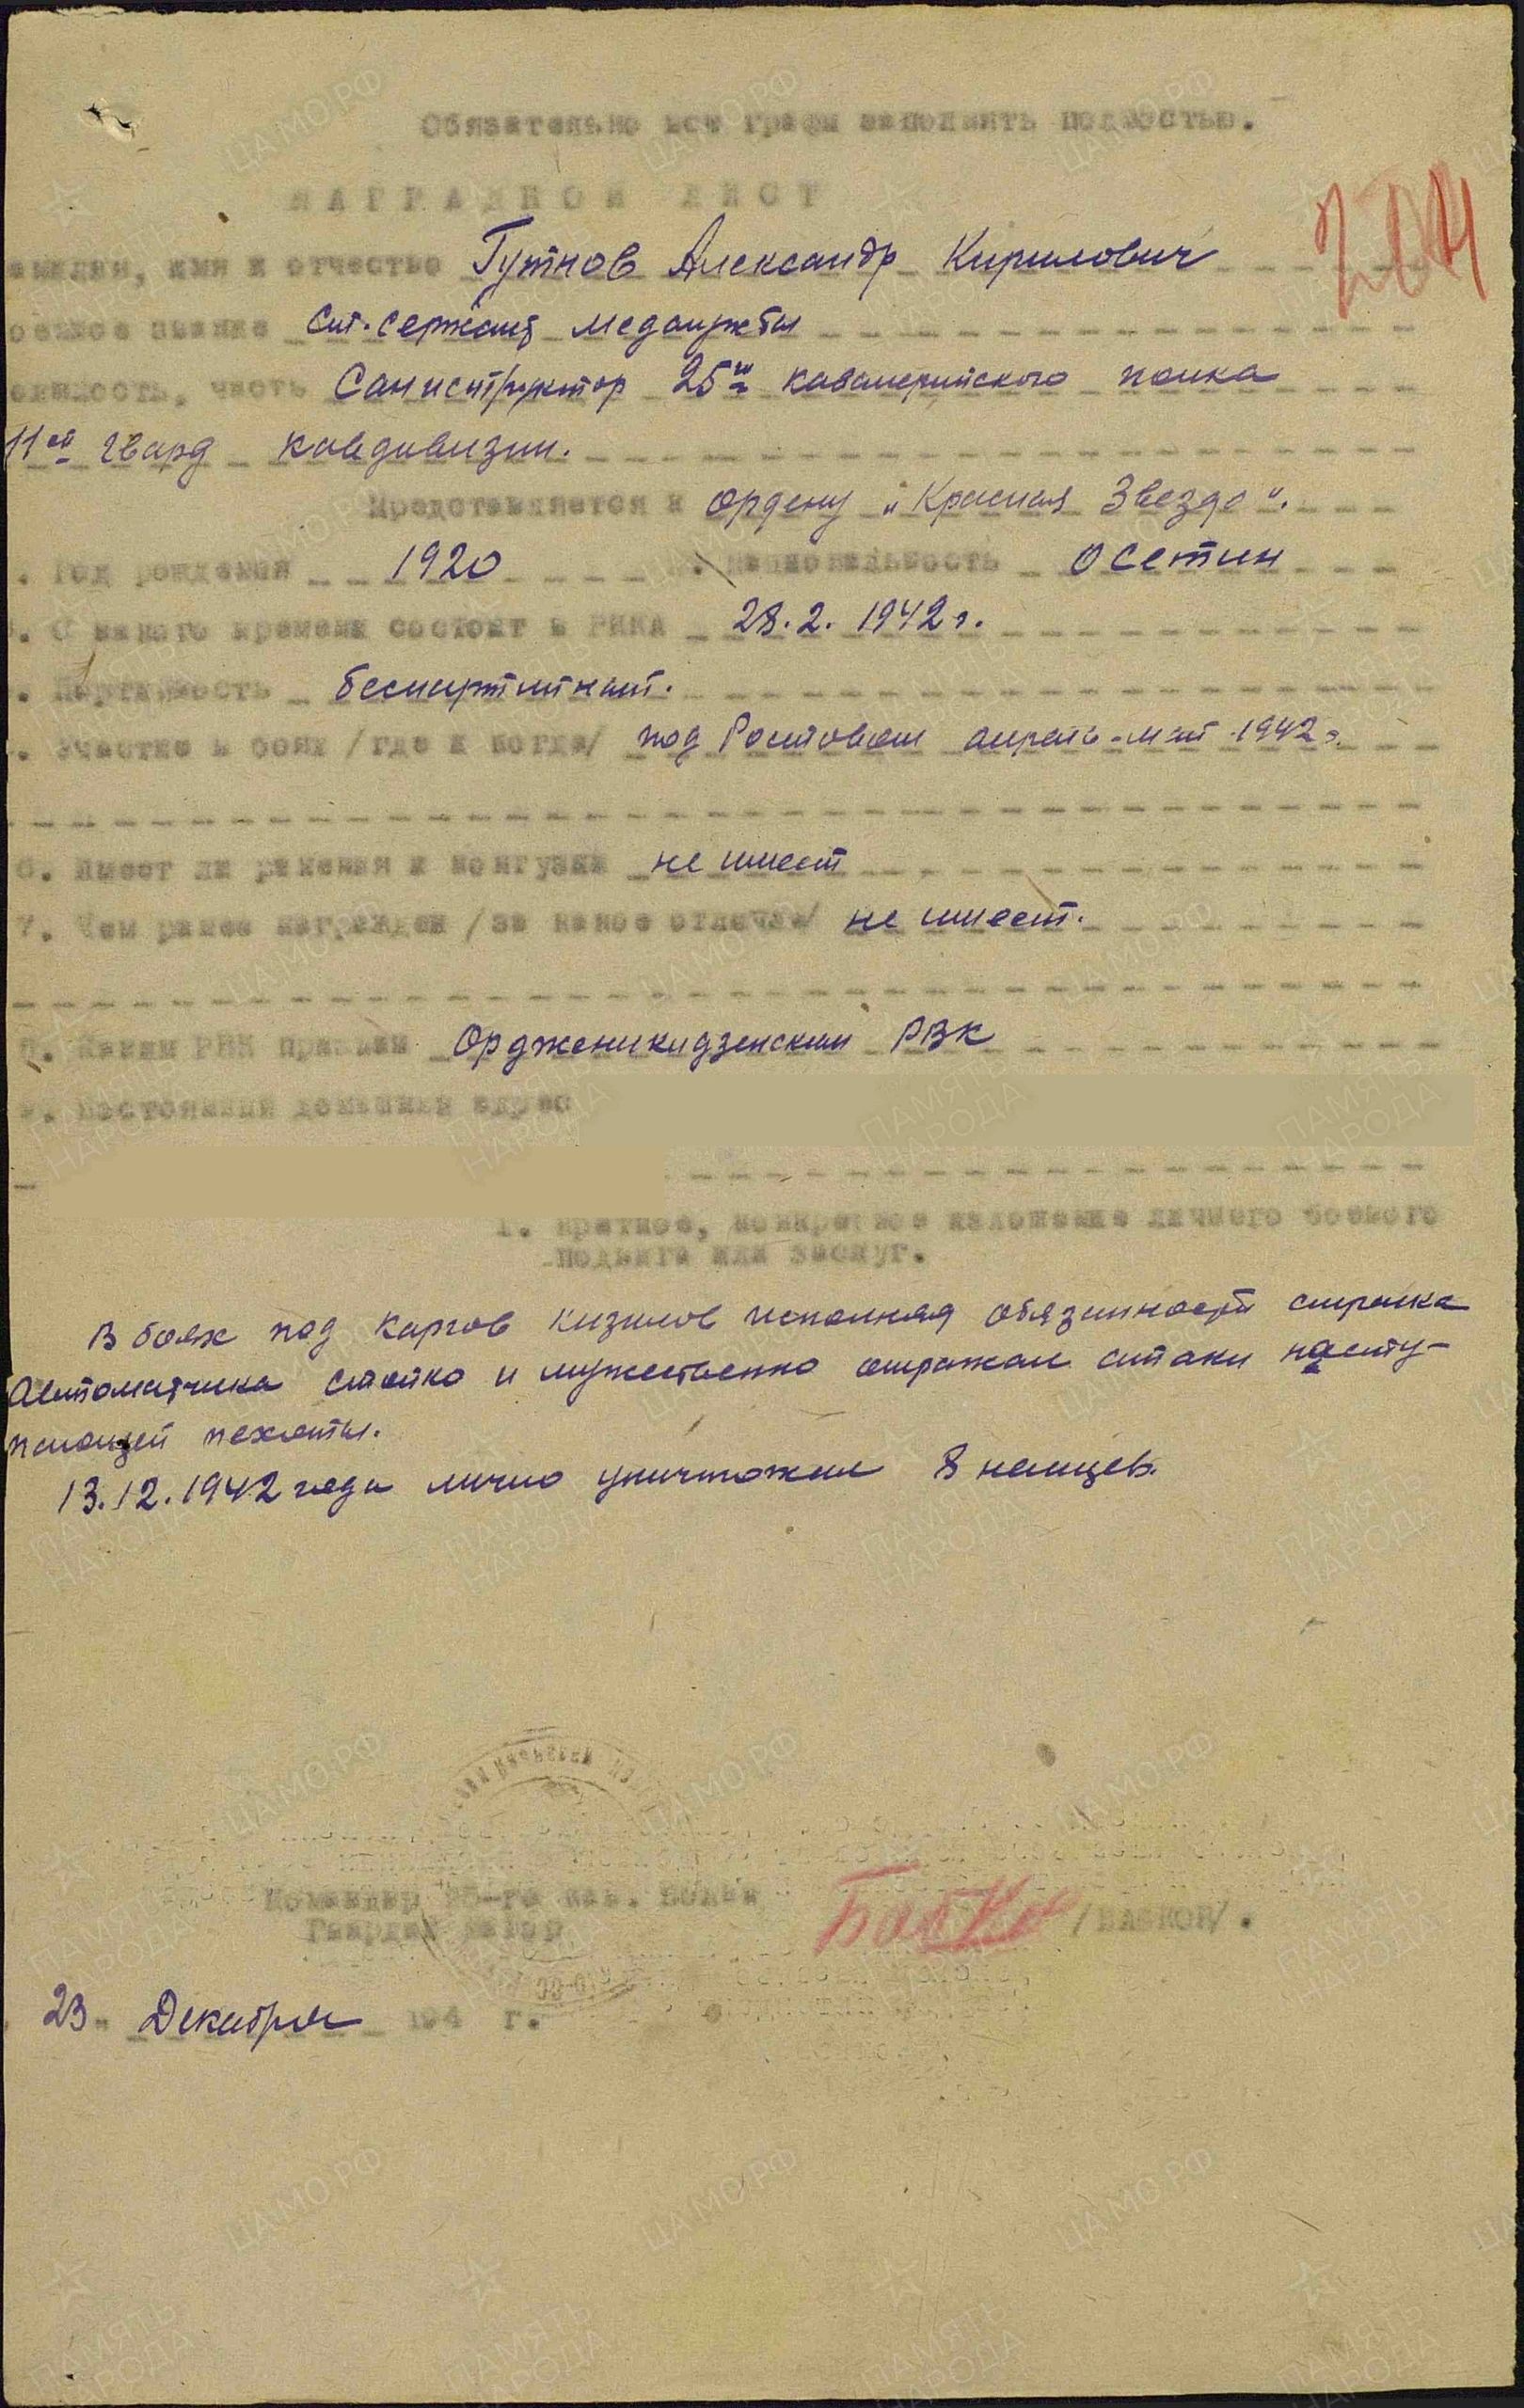 Обязательно все графы заполнять полностью.
НАГРАДНОЙ ЛИСТ
204
амилия, имя и отчество Гутнов Александр Кирилович
оенное звание Ст. сержант медслужбы
олжность, часть Санинструктор 25го кавалерийского полка
11ой гвард кавдивизии.
Представляется к ордену „Красная Звезда".
. Год рождения 1920 . Национальность Осетин
. С какого времени состоит в РККА 28.2.1942 г.
. Партийность беспартийный.
. Участие в боях /где и когда/ под Ростовом апрель-май 1942 г.
6. Имеет ли ранения и контузии не имеет
7. Чем ранее награжден /за какое отличие/ не имеет.
8. Каким РВК призван Орджоникидзенским РВК
9. Постоянный домашний адрес
1. Краткое, конкретное изложение личного боевого
подвига или заслуг.
В боях под Каргов Кизилов исполняя обязанности стрелка
Автоматчика стойко и мужественно отражал атаки насту-
пающей пехоты.
13.12.1942 года лично уничтожил 8 немцев.
Командир 25-го кав. полка
Гвардии майор /БАБКОВ/.
23. Декабря 194 г.